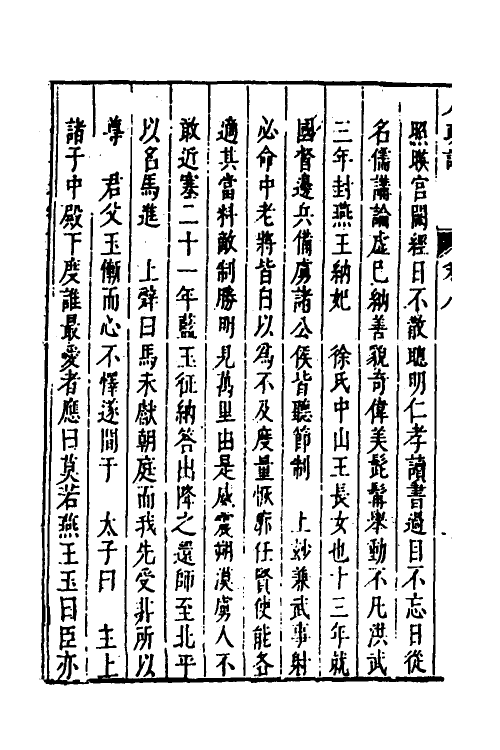 照映宫闕經日不散聰明仁孝讀書過目不忘日從
名儒講論虛已納善貌奇偉美髭髯舉動不凡洪武
三年封燕王納妃 徐氏中山王長女也十三年就
國督邊兵備虜諸公侯皆聽節制 上妙兼武事射
必命中老將皆自以為不及度量恢廓任賢使能各
適其當料敵制勝明見萬里由是威震朔漠虜人不
敢近塞二十一年藍玉征納答出降之還師至北平
以名馬進 上辝曰馬未獻朝庭而我先受非所以
尊 君父玉慚而心不懌遂間于 太子曰 主上
諸子中殿下度誰最愛者應曰莫若燕王玉曰臣亦